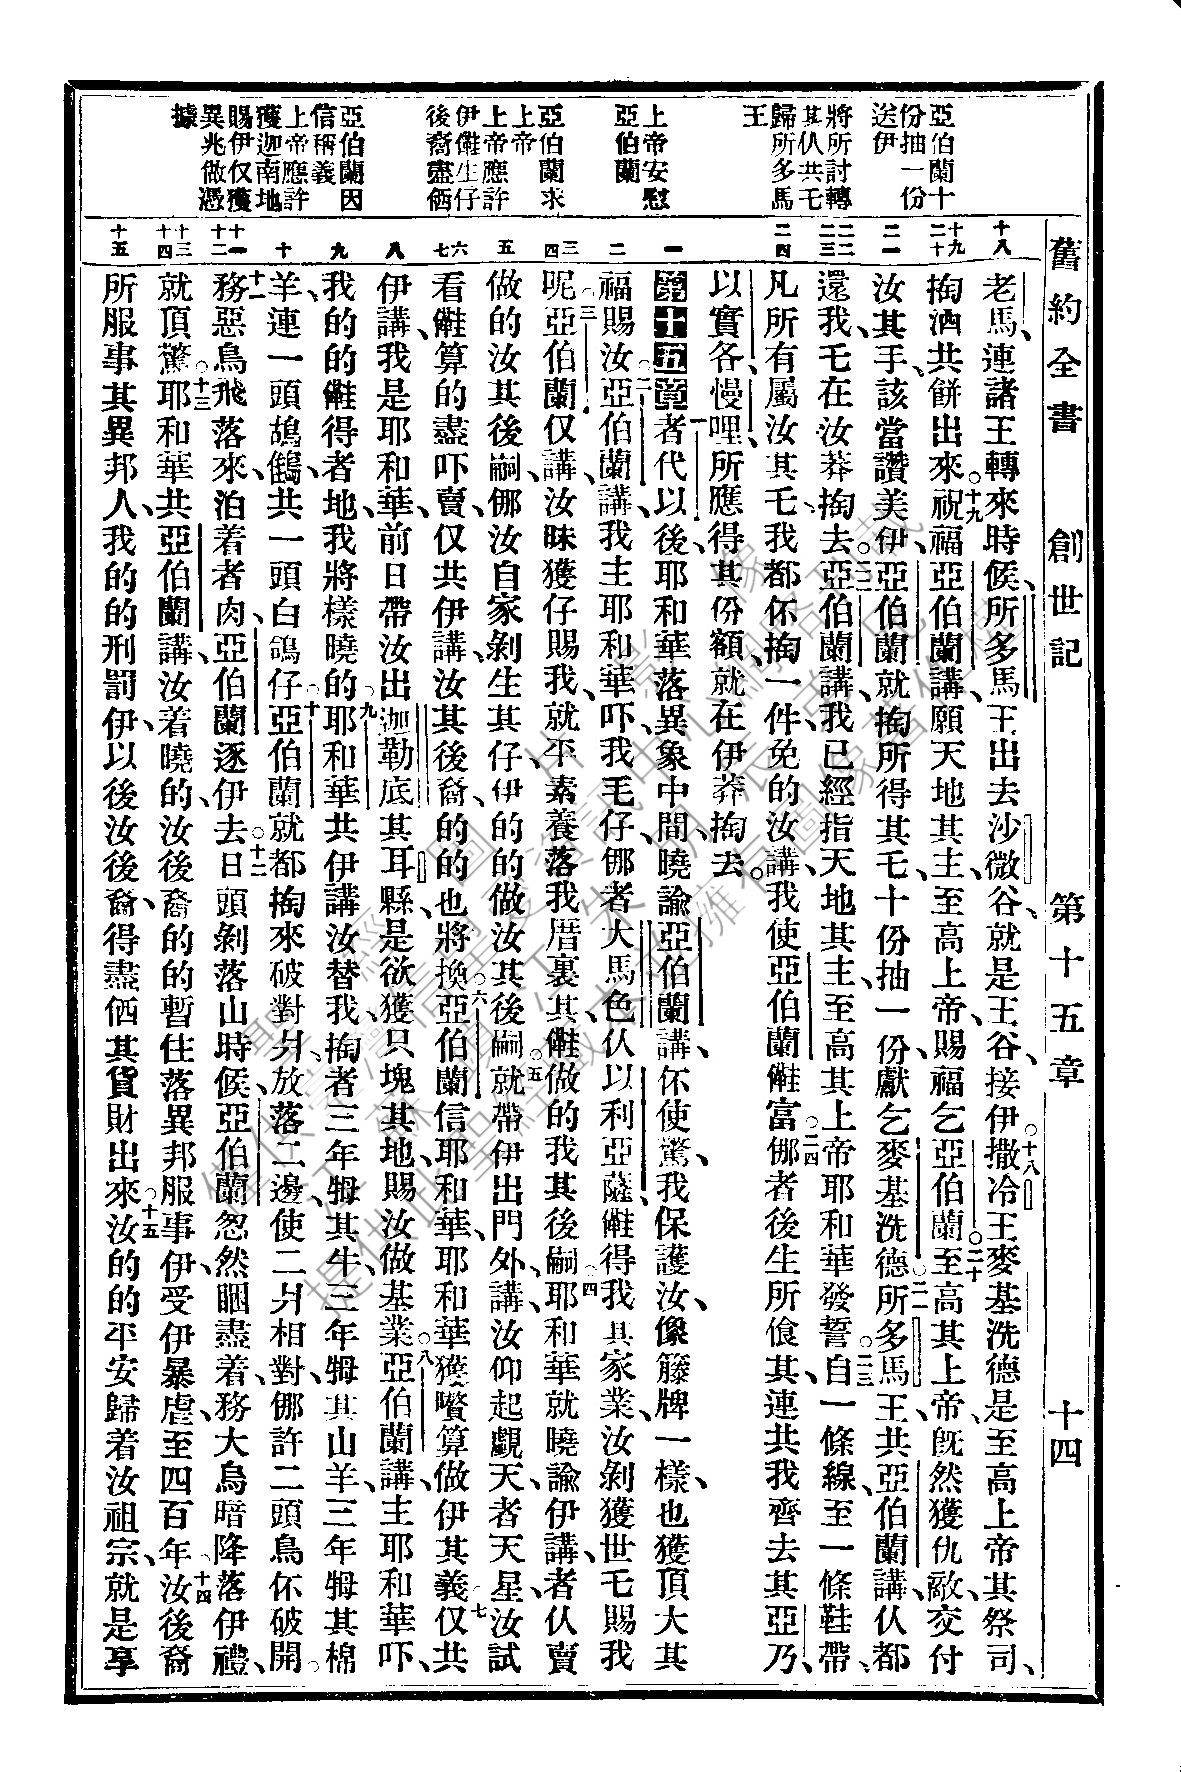 舊約全書 創世記 第十五章 十四
亞伯蘭十
份抽一份
送伊
將所討轉
其仈共乇
歸所多馬
王
上帝安慰
亞伯蘭
亞伯蘭求
上帝
上帝應許
伊𠆧生仔
後裔盡価
亞伯蘭因
信稱義
上帝應許
獲迦南地
賜伊仅獲
異兆做憑
據
十八
十九
二十
二一
二二
二三
二四
一
二
三
四
五
六
七
八
九
十
十一
十二
十三
十四
十五
老馬、連諸王轉來時候、所多馬王出去沙微谷、就是王谷、接伊。十八撒冷王麥基洗德是至高上帝其祭司、
掏酒共餅出來。十九祝福亞伯蘭講、願天地其主、至高上帝、賜福乞亞伯蘭。二十至高其上帝、旣然獲仇敵交付
汝其手、該當讚美伊、亞伯蘭就掏所得其乇、十份抽一份、獻乞麥基洗德。二一所多馬王、共亞伯蘭講、仈都
還我、乇在汝莽掏去。二二亞伯蘭講、我已經指天地其主、至高其上帝耶和華發誓。二三自一條線、至一條鞋帶、
凡所有屬汝其乇、我都伓掏一件、免的汝講、我使亞伯蘭𠆧富。二四㑚者後生所飡其、連共我齊去其亞乃、
以實各、慢哩、所應得其份額、就在伊莽掏去。
第十五章 一者代以後、耶和華落異象中間、曉諭亞伯蘭講、伓使驚、我保護汝、像籐牌一樣、也獲頂大其
福賜汝。二亞伯蘭講、我主耶和華吓、我毛仔、㑚者大馬色仈以利亞薩、𠆧得我其家業、汝剝獲世乇賜我
呢。三亞伯蘭仅講、汝昧獲仔賜我、就平素養落我厝裏其、𠆧做的我其後嗣。四耶和華就曉諭伊講、者仈賣
做的汝其後嗣、㑚汝自家剝生其仔、伊的的做汝其後嗣。五就帶伊出門外、講、汝仰起覷天、者天星、汝試
看𠆧算的盡吓賣、仅共伊講、汝其後裔、的的也將換。六亞伯蘭信耶和華、耶和華獲嚽算做伊其義。七仅共
伊講、我是耶和華、前日帶汝出迦勒底其耳縣、是欲獲只塊其地、賜汝做基業。八亞伯蘭講、主耶和華吓、
我的的𠆧得者地、我將樣曉的。九耶和華共伊講、汝替我掏者三年牳其牛、三年牳其山羊、三年牳其棉
羊、連一頭鴣鶴、共一頭白鴿仔。十亞伯蘭就都掏來破對爿、放落二邊、使二爿相對、㑚許二頭鳥伓破開。
十一務惡鳥飛落來、泊着者肉、亞伯蘭逐伊去。十二日頭剝落山時候、亞伯蘭忽然睏盡着、務大烏暗降落伊禮、
就頂驚。十三耶和華共亞伯蘭講、汝着曉的、汝後裔的的暫住落異邦、服事伊、受伊暴虐、至四百年。十四汝後裔
所服事其異邦人、我的的刑罰伊、以後汝後裔、得盡価其貨財出來。十五汝的的平安歸着汝祖宗、就是享